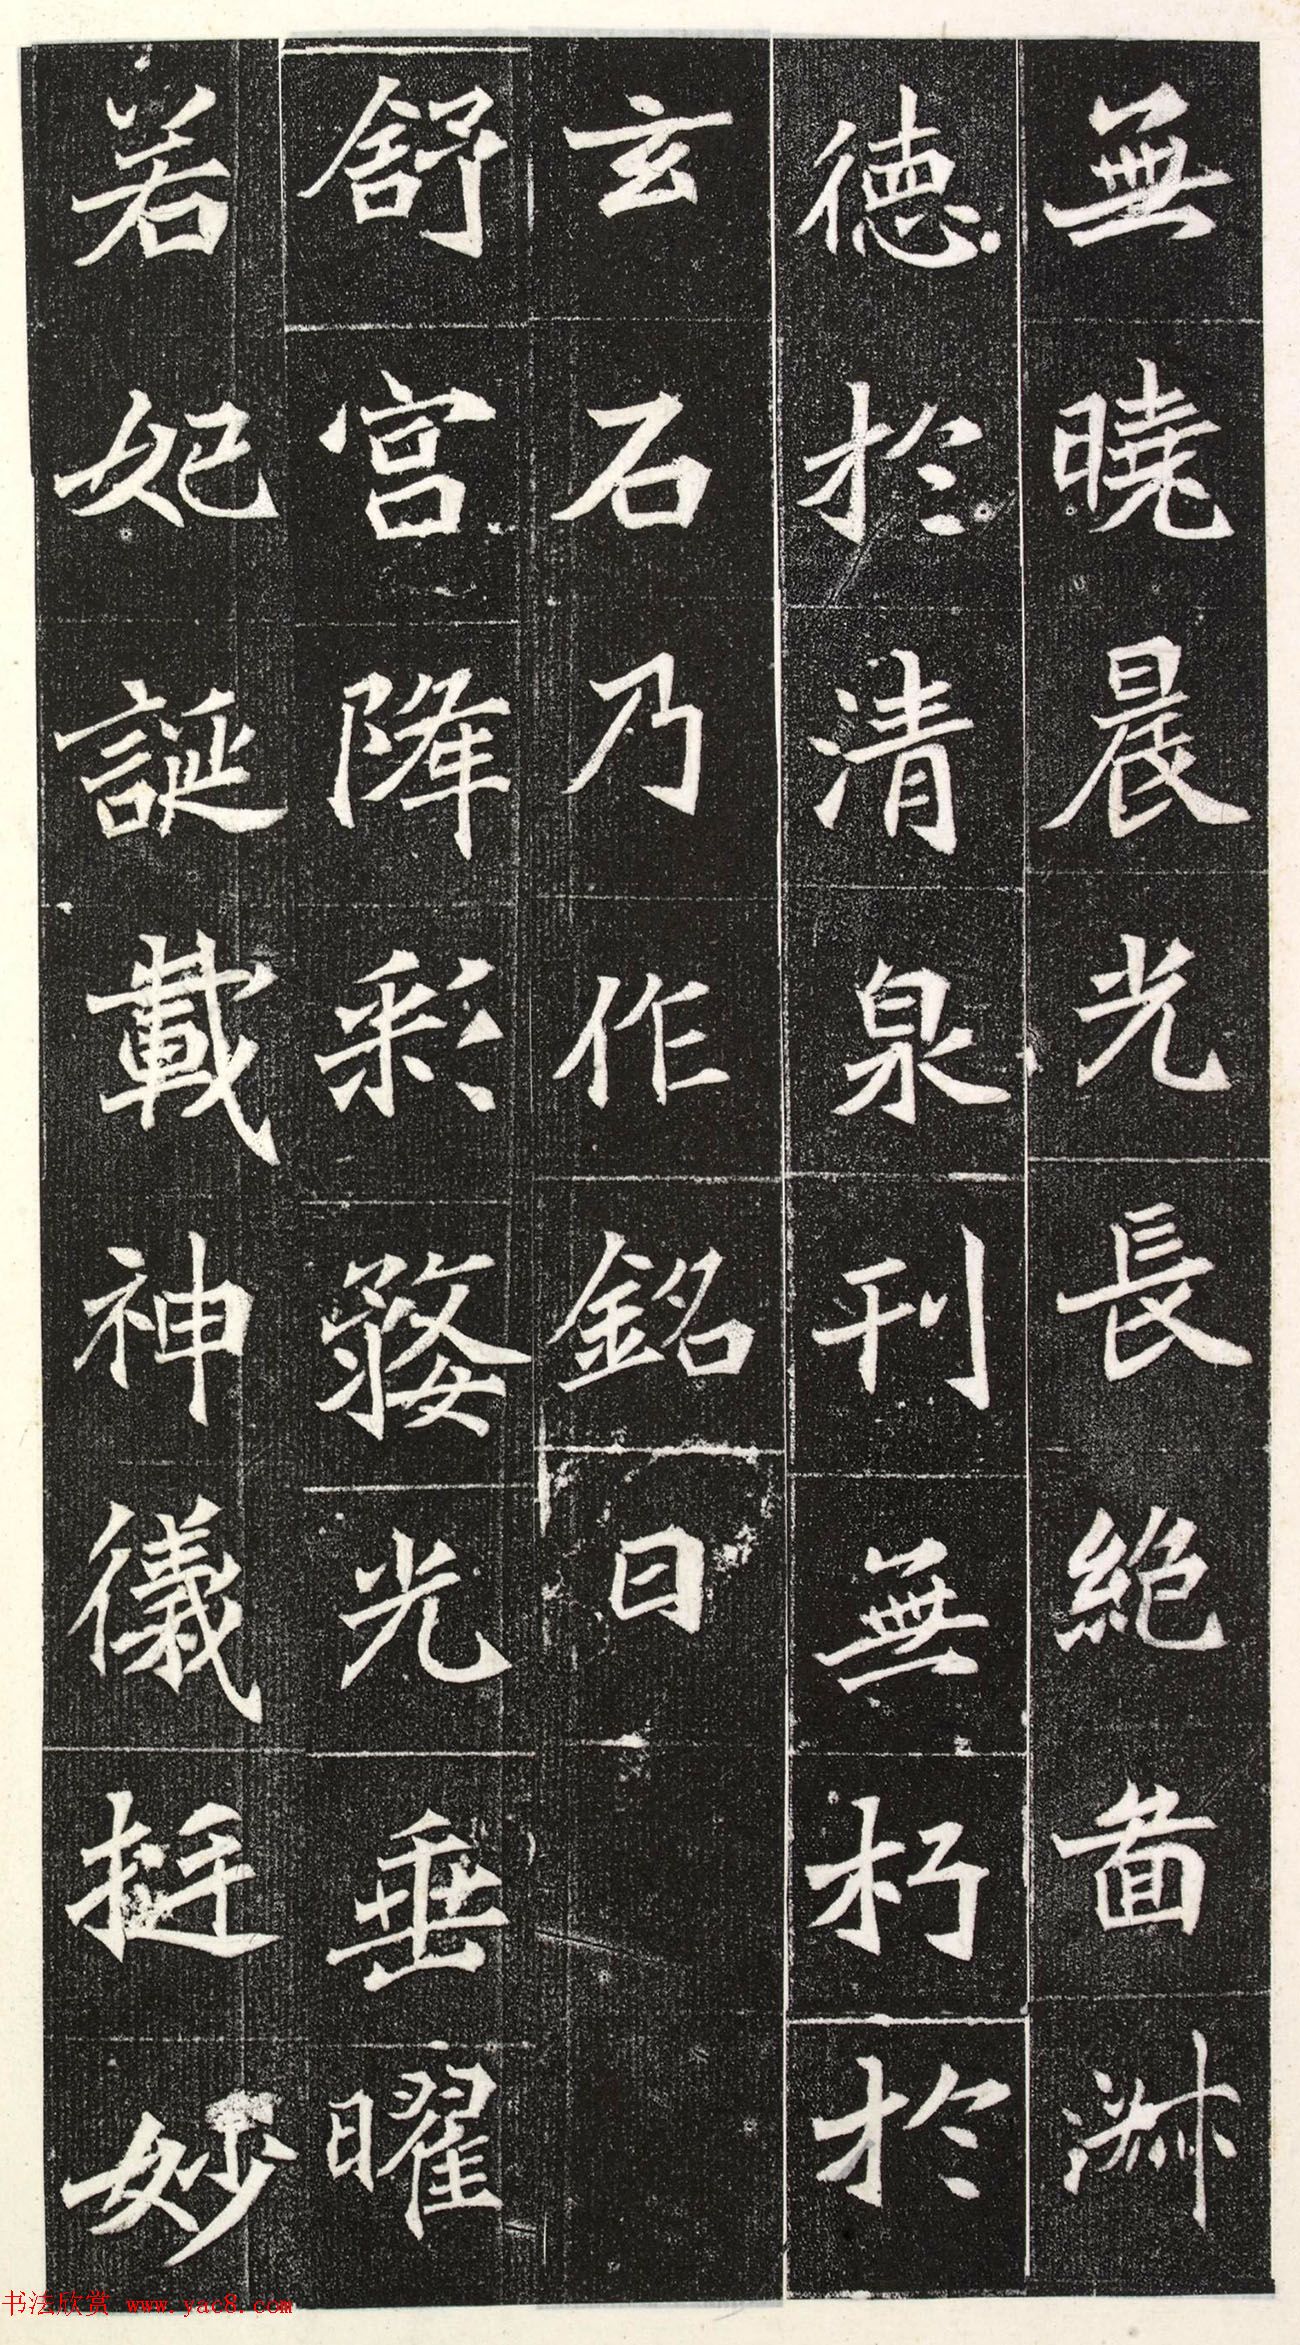 無曉晨光長絶啚淋
德於清泉刊無朽於
玄石乃作銘曰
舒宮降彩婺光垂曜
若妃誕載神儀挺妙
书法欣赏 www.yac8.com